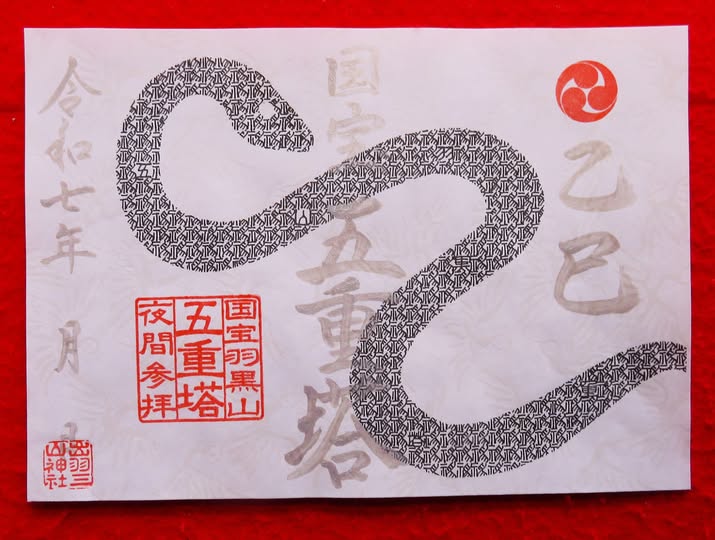 乙巳
国宝 五重塔
国宝羽黒山
五重塔
夜間参拝
令和七年 月 日
出羽三
山神社